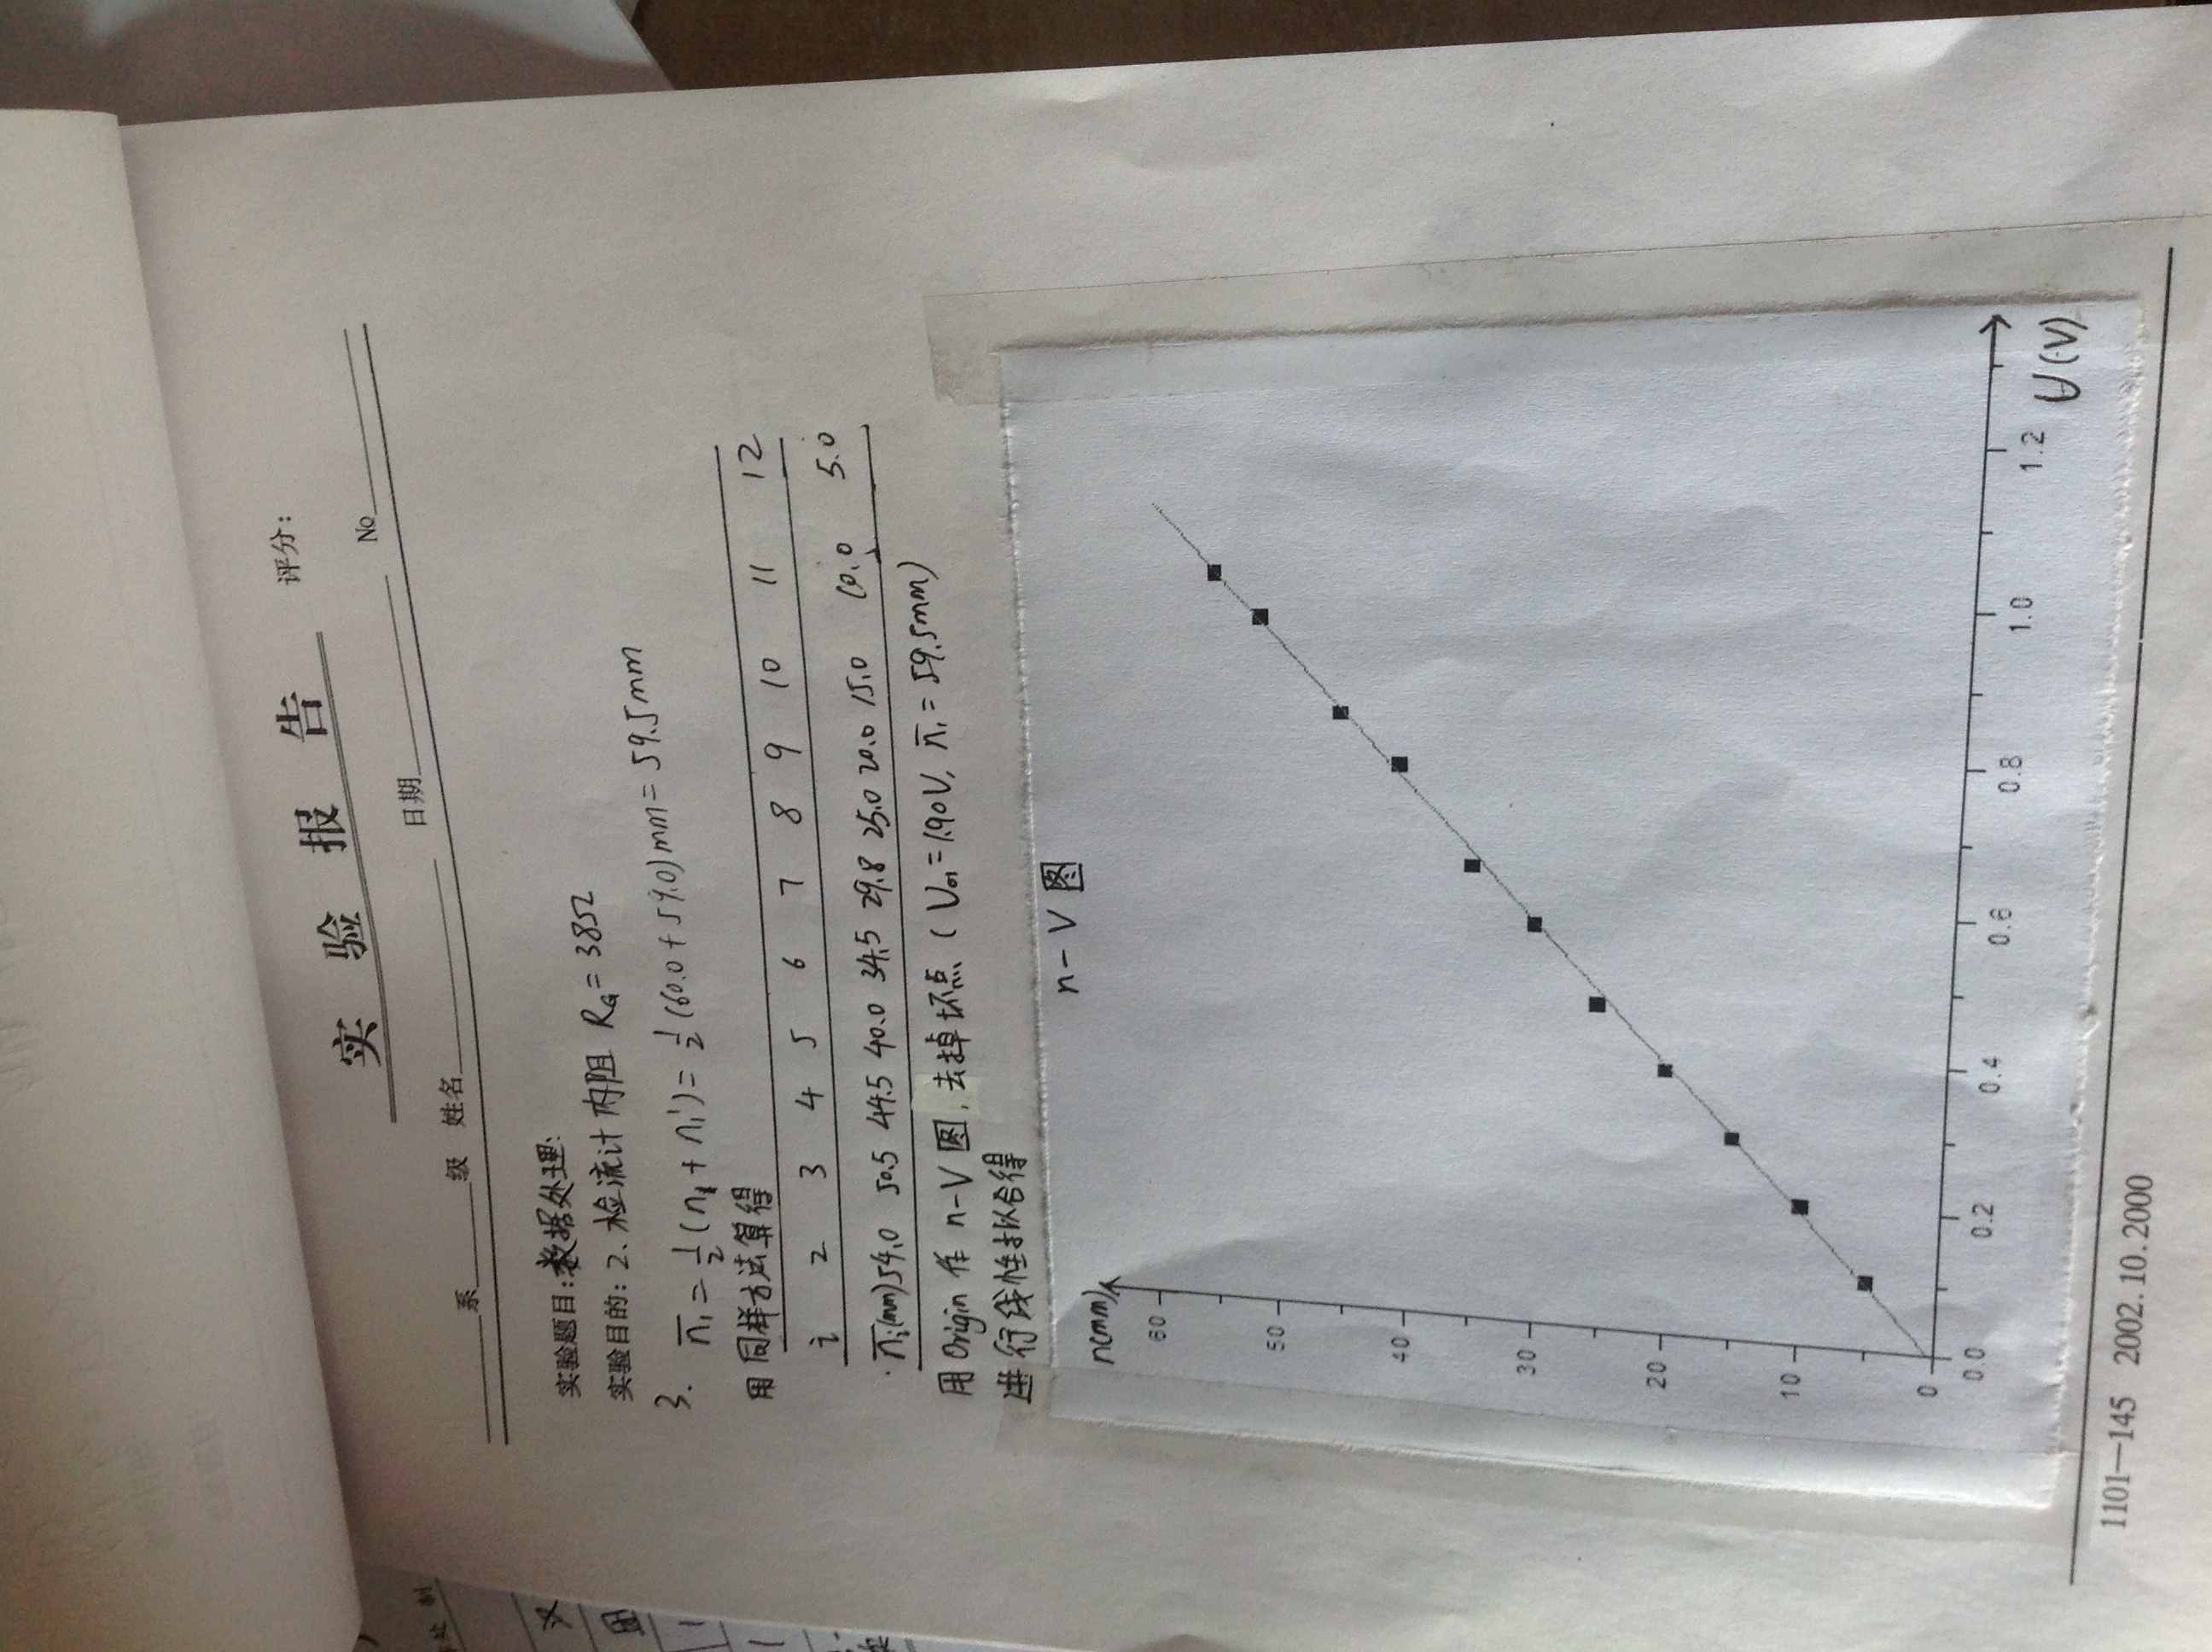 实验报告 评分：
系 级 姓名 日期 No
实验题目：数据处理：
实验目的：2、检流计内阻 R_G = 38Ω
3. n̄₁ = 1/2 (n₁ + n₁') = 1/2 (60.0 + 59.0) mm = 59.5 mm
用同样方法算得
i 2 3 4 5 6 7 8 9 10 11 12
n̄ᵢ(mm) 54.0 50.5 44.5 40.0 34.5 29.8 25.0 20.0 15.0 10.0 5.0
用Origin作 n-V 图，去掉坏点 (U₀₁ = 1.90V, n̄₁ = 59.5mm)
进行线性拟合得
n-V 图
n(mm)
60
50
40
30
20
10
0
0.0 0.2 0.4 0.6 0.8 1.0 1.2
U(V)
1101—145 2002.10.2000